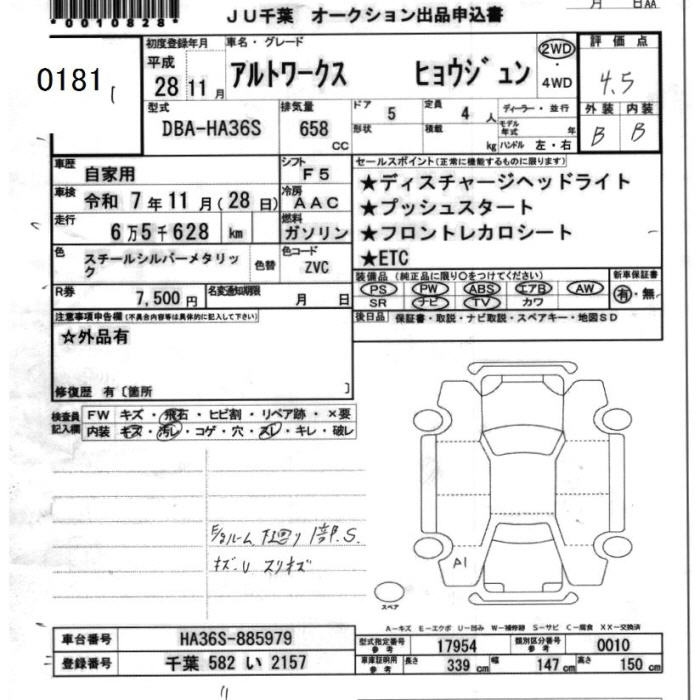 *0010828*
JU千葉 オークション出品申込書
月 日AA
0181
初度登録年月
平成
28 11 月
車名・グレード
アルトワークス ヒョウジュン
2WD
・
4WD
評価点
4.5
外装 内装
B B
型式
DBA-HA36S
排気量
658 CC
ドア
5
定員
4 人
形状
積載
kg
ディーラー・並行
モデル年式 年
ハンドル 左・右
車歴
自家用
シフト
F5
車検
令和 7 年 11 月 ( 28 日)
冷房
AAC
走行
6 万 5 千 628 km
燃料
ガソリン
色
スチールシルバーメタリック
色替
色コード
ZVC
R券
7,500 円
名変通知期限
月 日
セールスポイント(正常に機能するものに限ります)
★ディスチャージヘッドライト
★プッシュスタート
★フロントレカロシート
★ETC
装備品 (純正品に限り○をつけてください)
PS PW ABS エアB AW
SR ナビ TV カワ
新車保証書
有・無
後日品 保証書・取説・ナビ取説・スペアキー・地図SD
注意事項申告欄(不具合内容等は具体的に記入して下さい)
☆外品有
修復歴 有〔箇所 〕
検査員記入欄
FW キズ・飛石・ヒビ割・リペア跡・×要
内装 キズ・汚レ・コゲ・穴・スレ・キレ・破レ
下回り 1部.S.
キズ.U スリキズ
A1
スペア
A-キズ E-エクボ U-凹み W-補修跡 S-サビ C-腐食 XX-交換済
車台番号 HA36S-885979
登録番号 千葉 582 い 2157
型式指定番号 参考 17954
類別区分番号 参考 0010
車庫証明用 参考 長さ 339 cm 幅 147 cm 高さ 150 cm